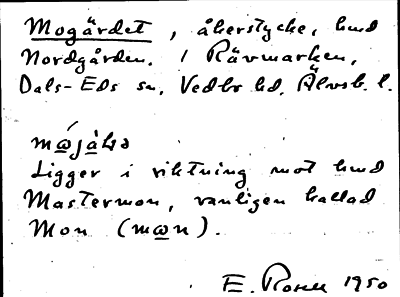 Mogärdet, åkerstycke, hmd
Nordgården. i Rävmarken,
Dals-Eds sn, Vedbo hd, Älvsb. l.
Ligger i riktning mot hmd
Mastermon, vanligen kallad
Mon (mɷn).
E. Rosell 1950